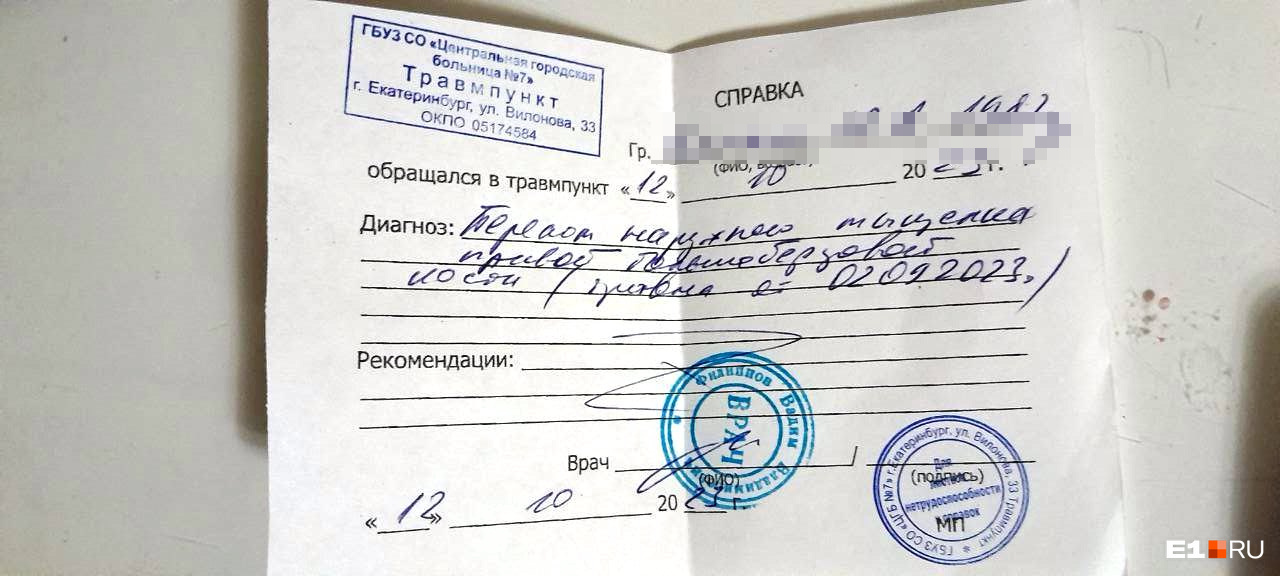 ГБУЗ СО «Центральная городская
больница №7»
Травмпункт
г. Екатеринбург, ул. Вилонова, 33
ОКПО 05174584
СПРАВКА
Гр.
(ФИО,
обращался в травмпункт «12» 10 2023 г.
Диагноз: Перелом наружного мыщелка
правой большеберцовой
кости (травма от 02.09.2023г)
Рекомендации:
Филиппов Вадим
ВРАЧ
Врач
(ФИО)
(подпись)
«12» 10 2023 г.
МП
ГБУЗ СО «ЦГБ №7» г.Екатеринбург, ул. Вилонова, 33 Травмпункт
Для
листков
нетрудоспособности
справок
E1.RU